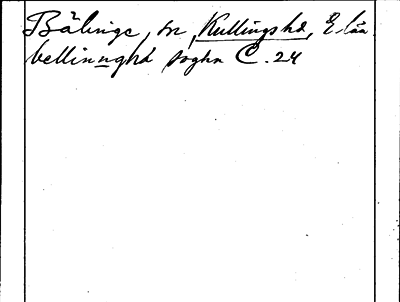 Bälinge, sn, Kullings hd, Ä. län
bellinnghä soghn C. 24